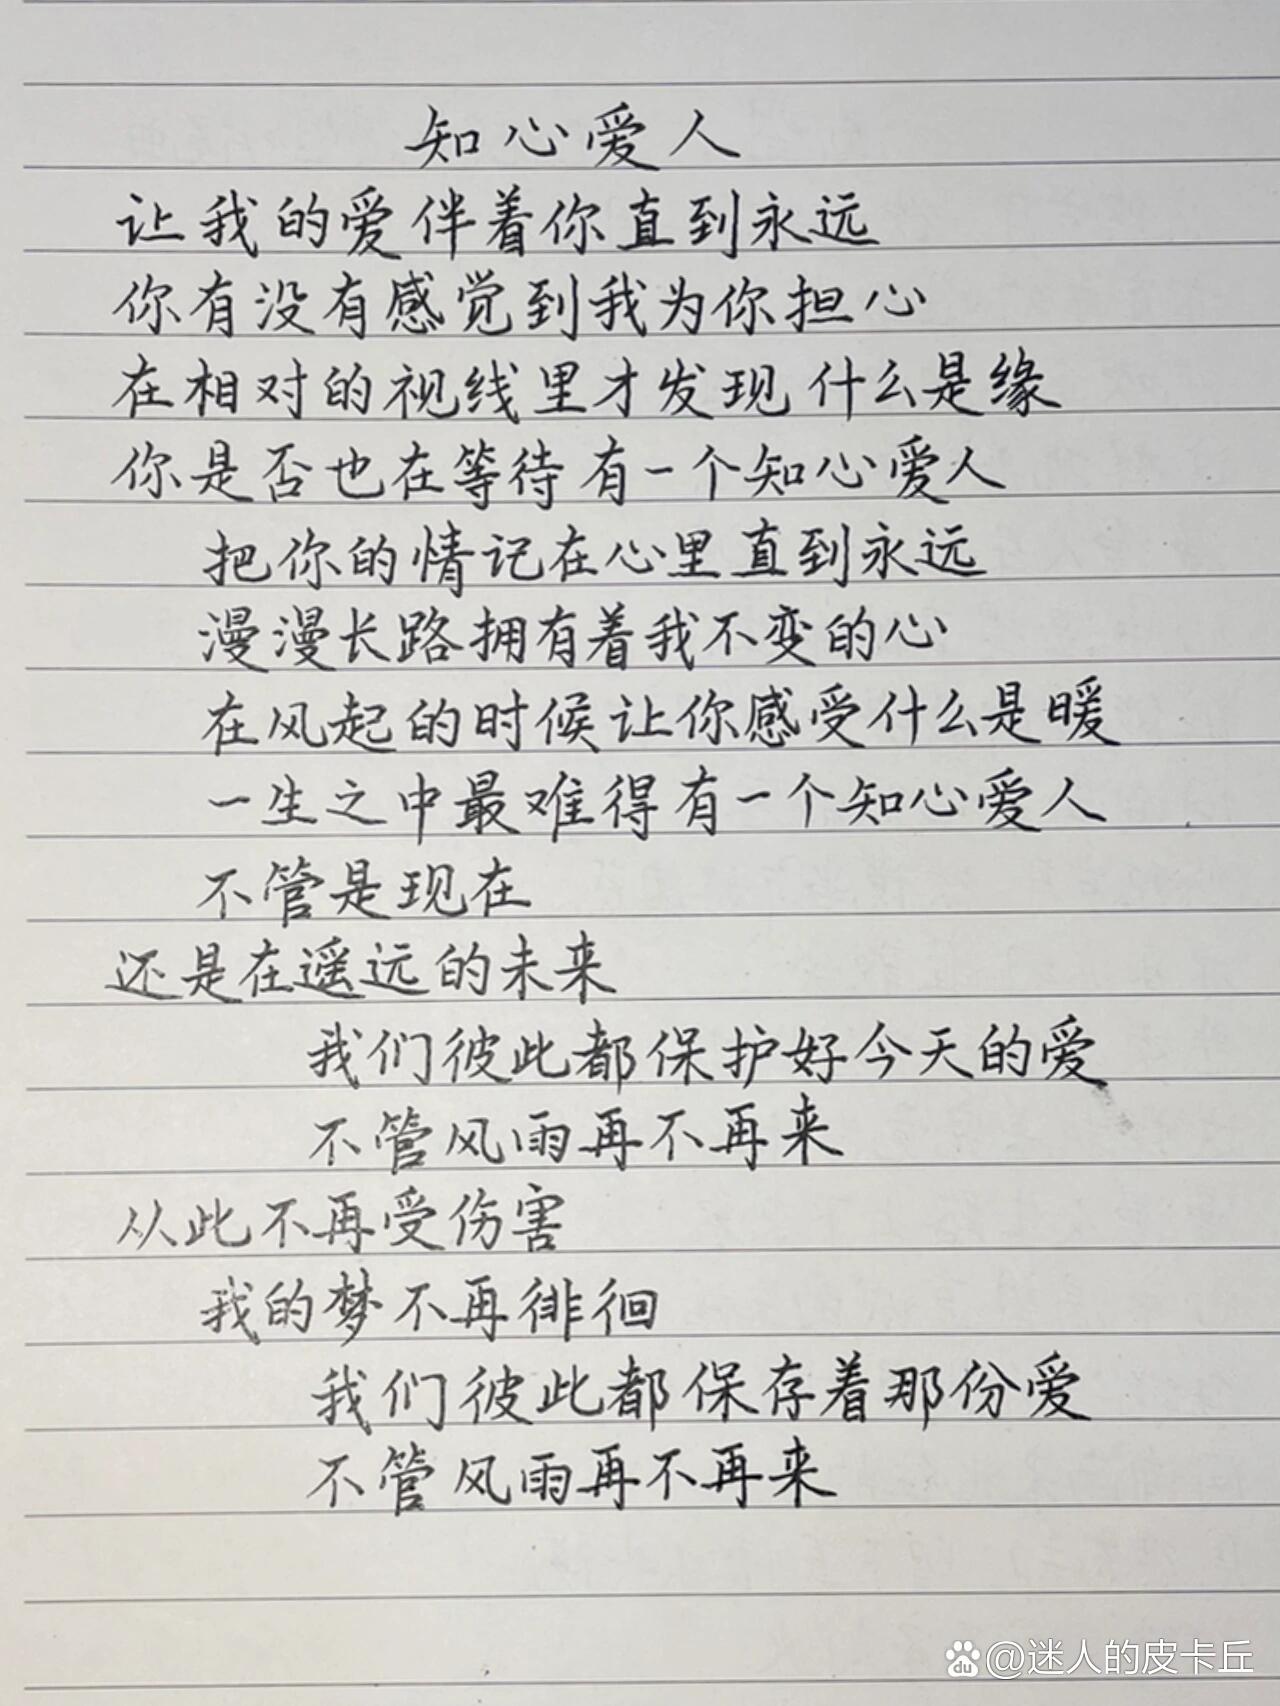 知心爱人
让我的爱伴着你直到永远
你有没有感觉到我为你担心
在相对的视线里才发现什么是缘
你是否也在等待有一个知心爱人
把你的情记在心里直到永远
漫漫长路拥有着我不变的心
在风起的时候让你感受什么是暖
一生之中最难得有一个知心爱人
不管是现在
还是在遥远的未来
我们彼此都保护好今天的爱
不管风雨再不再来
从此不再受伤害
我的梦不再徘徊
我们彼此都保存着那份爱
不管风雨再不再来
Bai du @迷人的皮卡丘